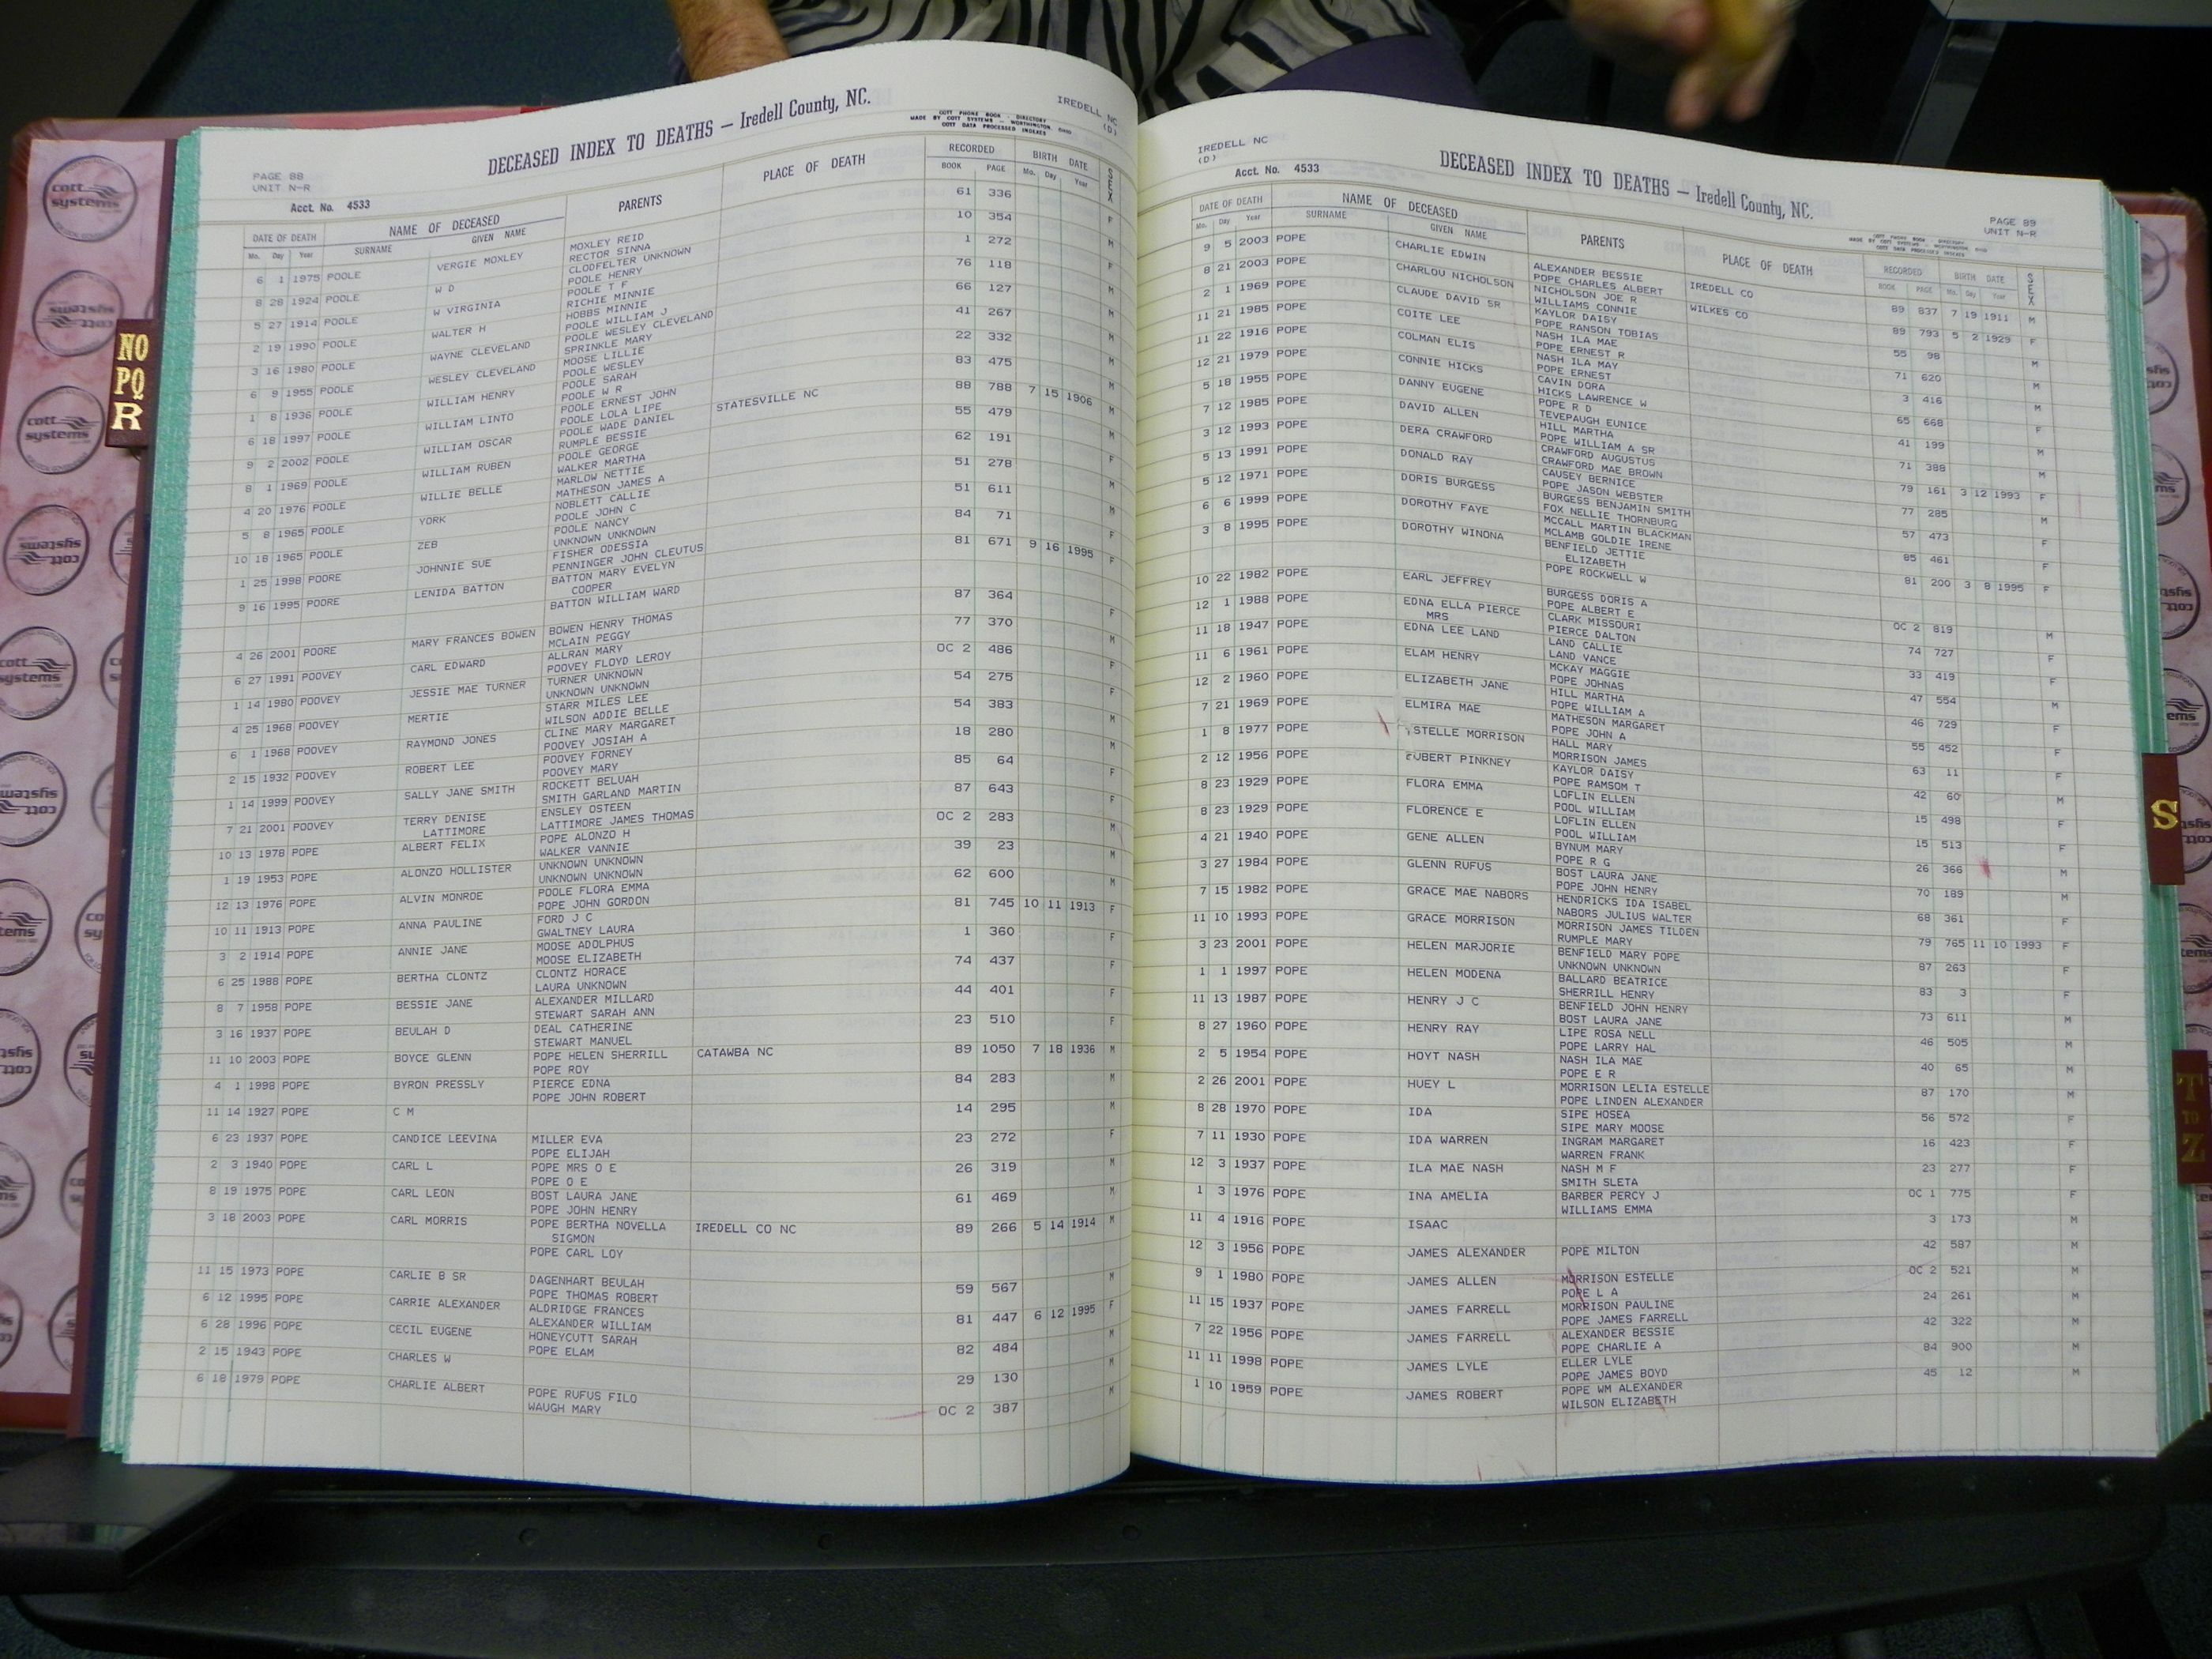 IREDELL NC
(D)
DECEASED INDEX TO DEATHS — Iredell County, NC.
COTT PHONE BOOK - DIRECTORY
MADE BY COTT SYSTEMS — WORTHINGTON, OHIO
COTT DATA PROCESSED INDEXES
PAGE 88
UNIT N-R
Acct. No. 4533
DATE OF DEATH NAME OF DECEASED PARENTS PLACE OF DEATH RECORDED BIRTH DATE SEX
Mo. Day Year SURNAME GIVEN NAME BOOK PAGE Mo. Day Year
6 1 1975 POOLE VERGIE MOXLEY MOXLEY REID 61 336 F
RECTOR SINNA
8 28 1924 POOLE W D CLODFELTER UNKNOWN 10 354 M
POOLE HENRY
5 27 1914 POOLE W VIRGINIA POOLE T F 1 272 F
RICHIE MINNIE
2 19 1990 POOLE WALTER H HOBBS MINNIE 76 118 M
POOLE WILLIAM J
3 16 1980 POOLE WAYNE CLEVELAND POOLE WESLEY CLEVELAND 66 127 M
SPRINKLE MARY
6 9 1955 POOLE WESLEY CLEVELAND MOOSE LILLIE 41 267 M
POOLE WESLEY
1 8 1936 POOLE WILLIAM HENRY POOLE SARAH 22 332 M
POOLE W R
6 18 1997 POOLE WILLIAM LINTO POOLE ERNEST JOHN 83 475 M
POOLE LOLA LIPE
9 2 2002 POOLE WILLIAM OSCAR POOLE WADE DANIEL STATESVILLE NC 88 788 7 15 1906 M
RUMPLE BESSIE
8 1 1969 POOLE WILLIAM RUBEN POOLE GEORGE 55 479 M
WALKER MARTHA
4 20 1976 POOLE WILLIE BELLE MARLOW NETTIE 62 191 F
MATHESON JAMES A
5 8 1965 POOLE YORK NOBLETT CALLIE 51 278 M
POOLE JOHN C
10 18 1965 POOLE ZEB POOLE NANCY 51 611 M
UNKNOWN UNKNOWN
1 25 1998 POORE JOHNNIE SUE FISHER ODESSIA 84 71 F
PENNINGER JOHN CLEUTUS
9 16 1995 POORE LENIDA BATTON BATTON MARY EVELYN 81 671 9 16 1995 F
COOPER
BATTON WILLIAM WARD
4 26 2001 POORE MARY FRANCES BOWEN BOWEN HENRY THOMAS 87 364 F
MCLAIN PEGGY
6 27 1991 POOVEY CARL EDWARD ALLRAN MARY 77 370 M
POOVEY FLOYD LEROY
1 14 1980 POOVEY JESSIE MAE TURNER TURNER UNKNOWN OC 2 486 F
UNKNOWN UNKNOWN
4 25 1968 POOVEY MERTIE STARR MILES LEE 54 275 F
WILSON ADDIE BELLE
6 1 1968 POOVEY RAYMOND JONES CLINE MARY MARGARET 54 383 M
POOVEY JOSIAH A
2 15 1932 POOVEY ROBERT LEE POOVEY FORNEY 18 280 M
POOVEY MARY
1 14 1999 POOVEY SALLY JANE SMITH ROCKETT BELUAH 85 64 F
SMITH GARLAND MARTIN
7 21 2001 POOVEY TERRY DENISE ENSLEY OSTEEN 87 643 F
LATTIMORE LATTIMORE JAMES THOMAS
10 13 1978 POPE ALBERT FELIX POPE ALONZO H OC 2 283 M
WALKER VANNIE
1 19 1953 POPE ALONZO HOLLISTER UNKNOWN UNKNOWN 39 23 M
UNKNOWN UNKNOWN
12 13 1976 POPE ALVIN MONROE POOLE FLORA EMMA 62 600 M
POPE JOHN GORDON
10 11 1913 POPE ANNA PAULINE FORD J C 81 745 10 11 1913 F
GWALTNEY LAURA
3 2 1914 POPE ANNIE JANE MOOSE ADOLPHUS 1 360 F
MOOSE ELIZABETH
6 25 1988 POPE BERTHA CLONTZ CLONTZ HORACE 74 437 F
LAURA UNKNOWN
8 7 1958 POPE BESSIE JANE ALEXANDER MILLARD 44 401 F
STEWART SARAH ANN
3 16 1937 POPE BEULAH D DEAL CATHERINE 23 510 F
STEWART MANUEL
11 10 2003 POPE BOYCE GLENN POPE HELEN SHERRILL CATAWBA NC 89 1050 7 18 1936 M
POPE ROY
4 1 1998 POPE BYRON PRESSLY PIERCE EDNA 84 283 M
POPE JOHN ROBERT
11 14 1927 POPE C M 14 295 M
6 23 1937 POPE CANDICE LEEVINA MILLER EVA 23 272 F
POPE ELIJAH
2 3 1940 POPE CARL L POPE MRS O E 26 319 M
POPE O E
8 19 1975 POPE CARL LEON BOST LAURA JANE 61 469 M
POPE JOHN HENRY
3 18 2003 POPE CARL MORRIS POPE BERTHA NOVELLA IREDELL CO NC 89 266 5 14 1914 M
SIGMON
POPE CARL LOY
11 15 1973 POPE CARLIE B SR DAGENHART BEULAH 59 567 M
POPE THOMAS ROBERT
6 12 1995 POPE CARRIE ALEXANDER ALDRIDGE FRANCES 81 447 6 12 1995 F
ALEXANDER WILLIAM
6 28 1996 POPE CECIL EUGENE HONEYCUTT SARAH 82 484 M
POPE ELAM
2 15 1943 POPE CHARLES W 29 130 M
6 18 1979 POPE CHARLIE ALBERT POPE RUFUS FILO OC 2 387 M
WAUGH MARY
IREDELL NC
(D)
Acct. No. 4533
DECEASED INDEX TO DEATHS — Iredell County, NC.
PAGE 89
UNIT N-R
COTT PHONE BOOK - DIRECTORY
MADE BY COTT SYSTEMS — WORTHINGTON, OHIO
COTT DATA PROCESSED INDEXES
DATE OF DEATH NAME OF DECEASED PARENTS PLACE OF DEATH RECORDED BIRTH DATE SEX
Mo. Day Year SURNAME GIVEN NAME BOOK PAGE Mo. Day Year
9 5 2003 POPE CHARLIE EDWIN ALEXANDER BESSIE IREDELL CO 89 837 7 19 1911 M
POPE CHARLES ALBERT
8 21 2003 POPE CHARLOU NICHOLSON NICHOLSON JOE R WILKES CO 89 793 5 2 1929 F
WILLIAMS CONNIE
2 1 1969 POPE CLAUDE DAVID SR KAYLOR DAISY 55 98 M
POPE RANSON TOBIAS
11 21 1985 POPE COITE LEE NASH ILA MAE 71 620 M
POPE ERNEST R
11 22 1916 POPE COLMAN ELIS NASH ILA MAY 3 416 M
POPE ERNEST
12 21 1979 POPE CONNIE HICKS CAVIN DORA 65 668 F
HICKS LAWRENCE W
5 18 1955 POPE DANNY EUGENE POPE R D 41 199 M
TEVEPAUGH EUNICE
7 12 1985 POPE DAVID ALLEN HILL MARTHA 71 388 M
POPE WILLIAM A SR
3 12 1993 POPE DERA CRAWFORD CRAWFORD AUGUSTUS 79 161 3 12 1993 F
CRAWFORD MAE BROWN
5 13 1991 POPE DONALD RAY CAUSEY BERNICE 77 285 M
POPE JASON WEBSTER
5 12 1971 POPE DORIS BURGESS BURGESS BENJAMIN SMITH 57 473 F
FOX NELLIE THORNBURG
6 6 1999 POPE DOROTHY FAYE MCCALL MARTIN BLACKMAN 85 461 F
MCLAMB GOLDIE IRENE
3 8 1995 POPE DOROTHY WINONA BENFIELD JETTIE 81 200 3 8 1995 F
ELIZABETH
POPE ROCKWELL W
10 22 1982 POPE EARL JEFFREY BURGESS DORIS A OC 2 819 M
POPE ALBERT E
12 1 1988 POPE EDNA ELLA PIERCE CLARK MISSOURI 74 727 F
MRS PIERCE DALTON
11 18 1947 POPE EDNA LEE LAND LAND CALLIE 33 419 F
LAND VANCE
11 6 1961 POPE ELAM HENRY MCKAY MAGGIE 47 554 M
POPE JOHNAS
12 2 1960 POPE ELIZABETH JANE HILL MARTHA 46 729 F
POPE WILLIAM A
7 21 1969 POPE ELMIRA MAE MATHESON MARGARET 55 452 F
POPE JOHN A
1 8 1977 POPE STELLE MORRISON HALL MARY 63 11 F
MORRISON JAMES
2 12 1956 POPE EUBERT PINKNEY KAYLOR DAISY 42 60 M
POPE RAMSOM T
8 23 1929 POPE FLORA EMMA LOFLIN ELLEN 15 498 F
POOL WILLIAM
8 23 1929 POPE FLORENCE E LOFLIN ELLEN 15 513 F
POOL WILLIAM
4 21 1940 POPE GENE ALLEN BYNUM MARY 26 366 M
POPE R G
3 27 1984 POPE GLENN RUFUS BOST LAURA JANE 70 189 M
POPE JOHN HENRY
7 15 1982 POPE GRACE MAE NABORS HENDRICKS IDA ISABEL 68 361 F
NABORS JULIUS WALTER
11 10 1993 POPE GRACE MORRISON MORRISON JAMES TILDEN 79 765 11 10 1993 F
RUMPLE MARY
3 23 2001 POPE HELEN MARJORIE BENFIELD MARY POPE 87 263 F
UNKNOWN UNKNOWN
1 1 1997 POPE HELEN MODENA BALLARD BEATRICE 83 3 F
SHERRILL HENRY
11 13 1987 POPE HENRY J C BENFIELD JOHN HENRY 73 611 M
BOST LAURA JANE
8 27 1960 POPE HENRY RAY LIPE ROSA NELL 46 505 M
POPE LARRY HAL
2 5 1954 POPE HOYT NASH NASH ILA MAE 40 65 M
POPE E R
2 26 2001 POPE HUEY L MORRISON LELIA ESTELLE 87 170 M
POPE LINDEN ALEXANDER
8 28 1970 POPE IDA SIPE HOSEA 56 572 F
SIPE MARY MOOSE
7 11 1930 POPE IDA WARREN INGRAM MARGARET 16 423 F
WARREN FRANK
12 3 1937 POPE ILA MAE NASH NASH M F 23 277 F
SMITH SLETA
1 3 1976 POPE INA AMELIA BARBER PERCY J OC 1 775 F
WILLIAMS EMMA
11 4 1916 POPE ISAAC 3 173 M
12 3 1956 POPE JAMES ALEXANDER POPE MILTON 42 587 M
9 1 1980 POPE JAMES ALLEN MORRISON ESTELLE OC 2 521 M
POPE L A
11 15 1937 POPE JAMES FARRELL MORRISON PAULINE 24 261 M
POPE JAMES FARRELL
7 22 1956 POPE JAMES FARRELL ALEXANDER BESSIE 42 322 M
POPE CHARLIE A
11 11 1998 POPE JAMES LYLE ELLER LYLE 84 900 M
POPE JAMES BOYD
1 10 1959 POPE JAMES ROBERT POPE WM ALEXANDER 45 12 M
WILSON ELIZABETH
NO
PQ
R
S
T
TO
Z
cott
systems